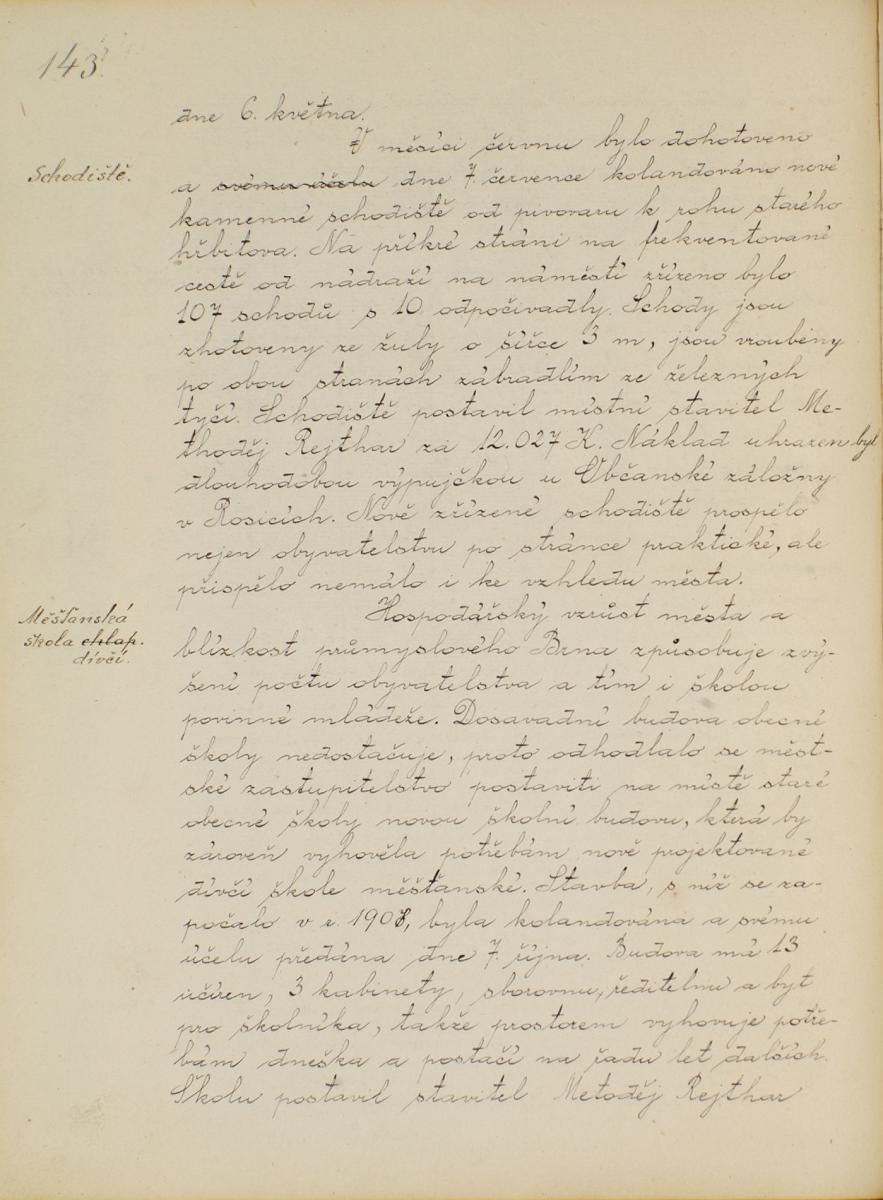 143.
dne 6. května.
V měsíci červnu bylo dohotoveno
Schodiště.
a svému účelu dne 7. července kolaudováno nové
kamenné schodiště od pivovaru k rohu starého
hřbitova. Na příkré stráni na frekventované
cestě od nádraží na náměstí zřízeno bylo
107 schodů s 10 odpočívadly. Schody jsou
zhotoveny ze žuly o šířce 3 m, jsou vroubeny
po obou stranách zábradlím ze železných
tyčí. Schodiště postavil místní stavitel Me-
thoděj Rejthar za 12.027 K. Náklad uhrazen byl
dlouhodobou výpujčkou u Občanské záložny
v Rosicích. Nově zřízené schodiště prospělo
nejen obyvatelstvu po stránce praktické, ale
přispělo nemálo i ke vzhledu města.
Měšťanská
škola chlap.
dívčí.
Hospodářský vzrůst města a
blízkost průmyslového Brna způsobuje zvý-
šení počtu obyvatelstva a tím i školou
povinné mládeže. Dosavadní budova obecné
školy nedostačuje, proto odhodlalo se měst-
ské zastupitelstvo postaviti na místě staré
obecné školy novou školní budovu, která by
zároveň vyhověla potřebám nově projektované
dívčí škole měšťanské. Stavba, s níž se za-
počalo v r. 1908, byla kolaudována a svému
účelu předána dne 7. října. Budova má 13
učíren, 3 kabinety, sborovnu, ředitelnu a byt
pro školníka, takže prostorem vyhovuje potře-
bám dneška a postačí na řadu let dalších.
Školu postavil stavitel Metoděj Rejthar